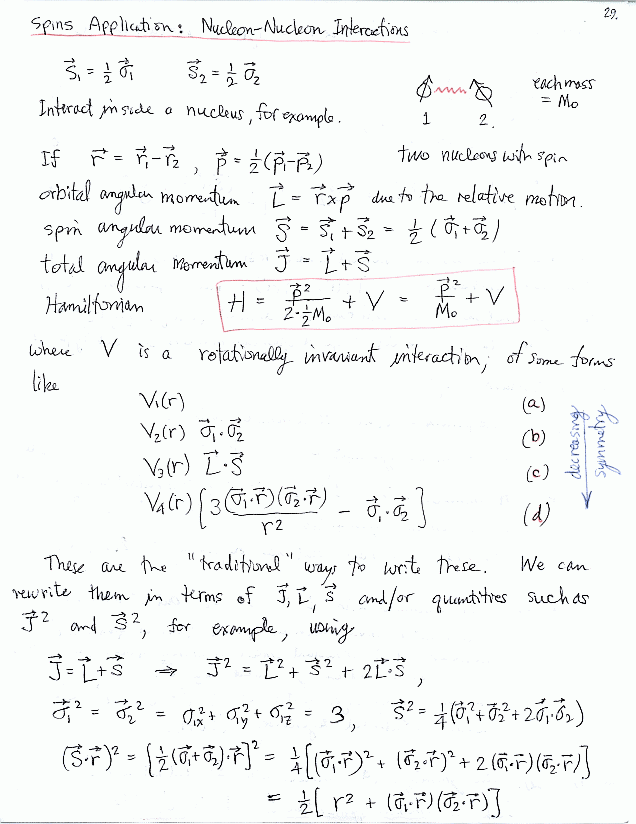 29.
Spins Application: Nucleon-Nucleon Interactions
S⃗₁ = ½ σ⃗₁ S⃗₂ = ½ σ⃗₂
each mass
= M₀
Interact inside a nucleus, for example.
1 2.
If r⃗ = r⃗₁ - r⃗₂ , p⃗ = ½(p⃗₁-p⃗₂) two nucleons with spin
orbital angular momentum L⃗ = r⃗ x p⃗ due to the relative motion.
spin angular momentum S⃗ = S⃗₁ + S⃗₂ = ½ (σ⃗₁+σ⃗₂)
total angular momentum J⃗ = L⃗ + S⃗
Hamiltonian H = p⃗²/(2·½M₀) + V = p⃗²/M₀ + V
where V is a rotationally invariant interaction, of some forms
like
V₁(r) (a)
V₂(r) σ⃗₁·σ⃗₂ (b)
V₃(r) L⃗·S⃗ (c)
V₄(r) [3 (σ⃗₁·r⃗)(σ⃗₂·r⃗)/r² - σ⃗₁·σ⃗₂] (d)
decreasing
symmetry
These are the "traditional" ways to write these. We can
rewrite them in terms of J⃗, L⃗, S⃗ and/or quantities such as
J⃗² and S⃗², for example, using
J⃗ = L⃗ + S⃗ ⇒ J⃗² = L⃗² + S⃗² + 2L⃗·S⃗ ,
σ⃗₁² = σ⃗₂² = σ₁ₓ² + σ₁y² + σ₁z² = 3 , S⃗² = ¼(σ⃗₁²+σ⃗₂²+2σ⃗₁·σ⃗₂)
(S⃗·r⃗)² = [½(σ⃗₁+σ⃗₂)·r⃗]² = ¼[(σ⃗₁·r⃗)² + (σ⃗₂·r⃗)² + 2(σ⃗₁·r⃗)(σ⃗₂·r⃗)]
= ½[ r² + (σ⃗₁·r⃗)(σ⃗₂·r⃗)]